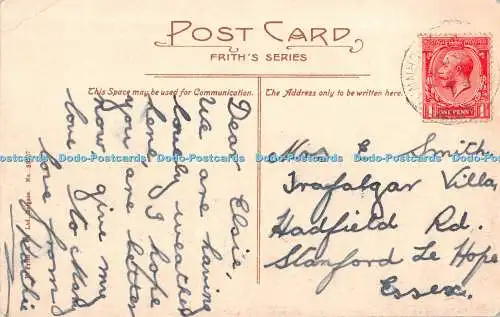 POST CARD
FRITH'S SERIES
This Space may be used for Communication.
The Address only to be written here.
ONE PENNY
Dear Elsie,
We are having
lovely weather
here, I hope
you are better
now give my
love to Mad
love from
Mrs E Smith
Trafalgar Villa
Hadfield Rd.
Stanford Le Hope
Essex.
Dodo-Postcards Dodo-Postcards Dodo-Postcards Dodo-Postcards Dodo-Postcards Dodo-Postcards